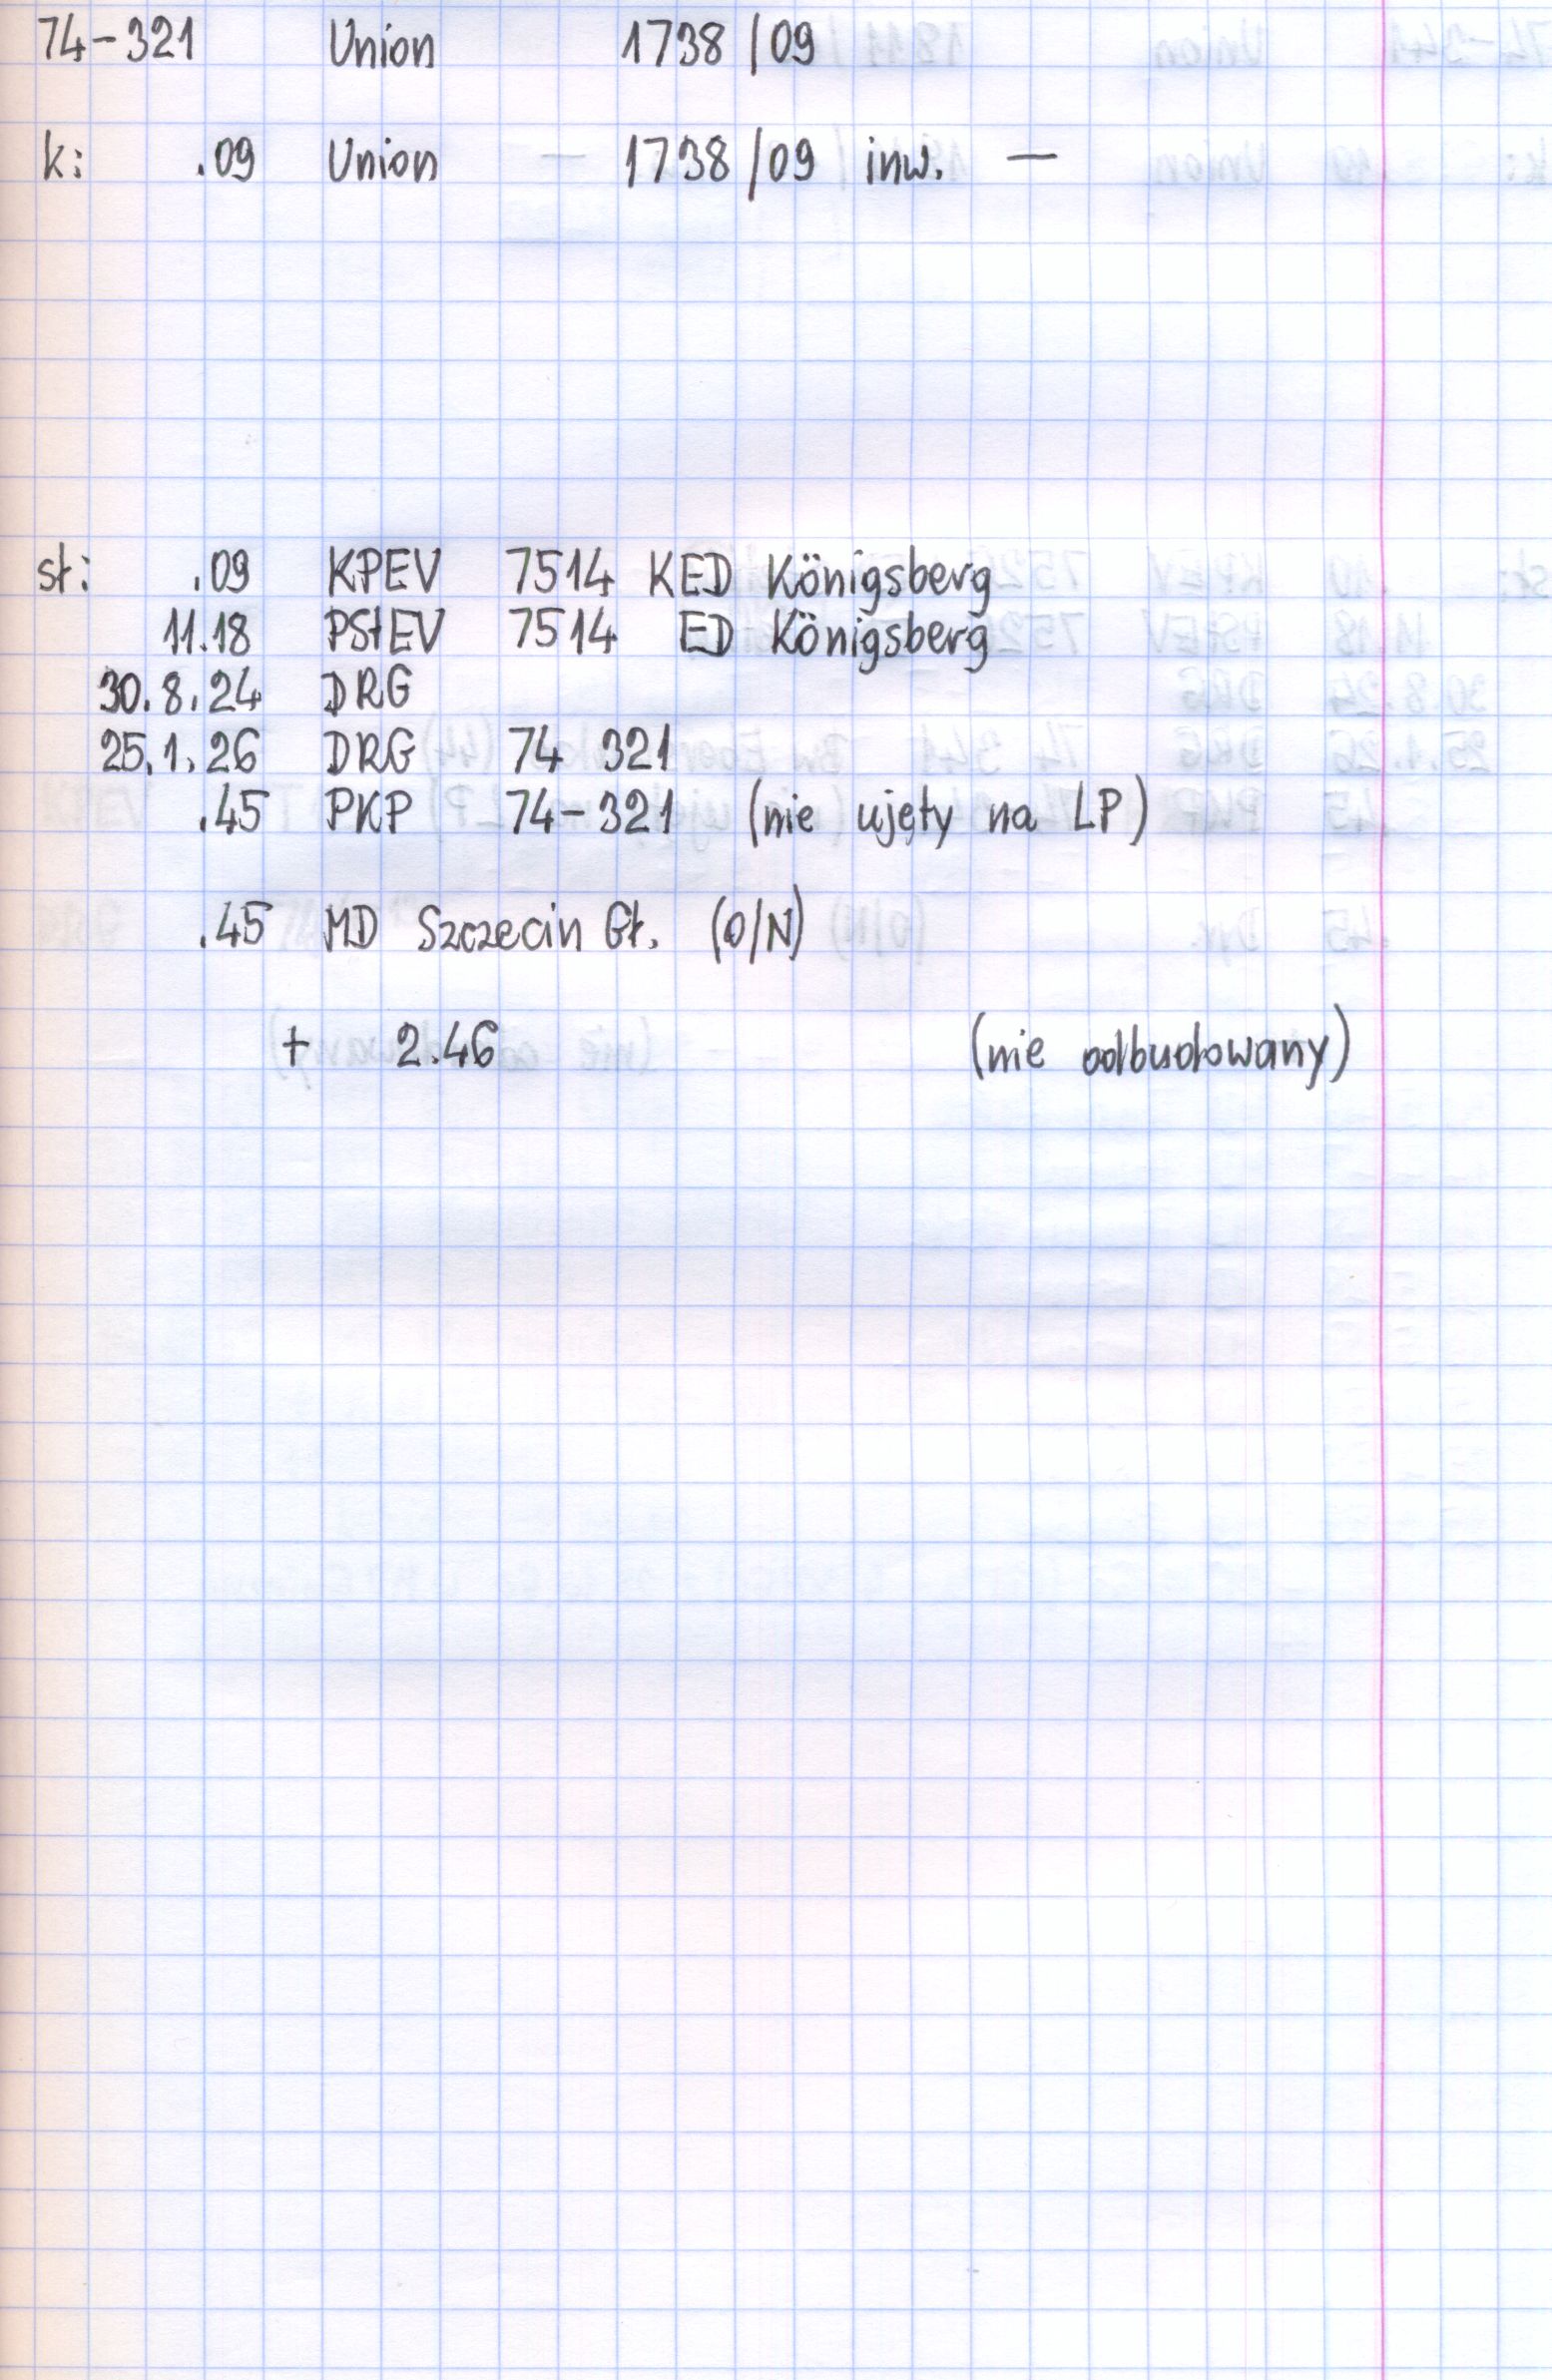 74-321 Union 1738/09
k: .09 Union — 1738/09 inw. —
st: .09 KPEV 7514 KED Königsberg
11.18 PStEV 7514 ED Königsberg
30.8.24 DRG
25.1.26 DRG 74 321
.45 PKP 74-321 (nie ujęty na LP)
.45 MD Szczecin Gł. (O/N)
+ 2.46 (nie odbudowany)